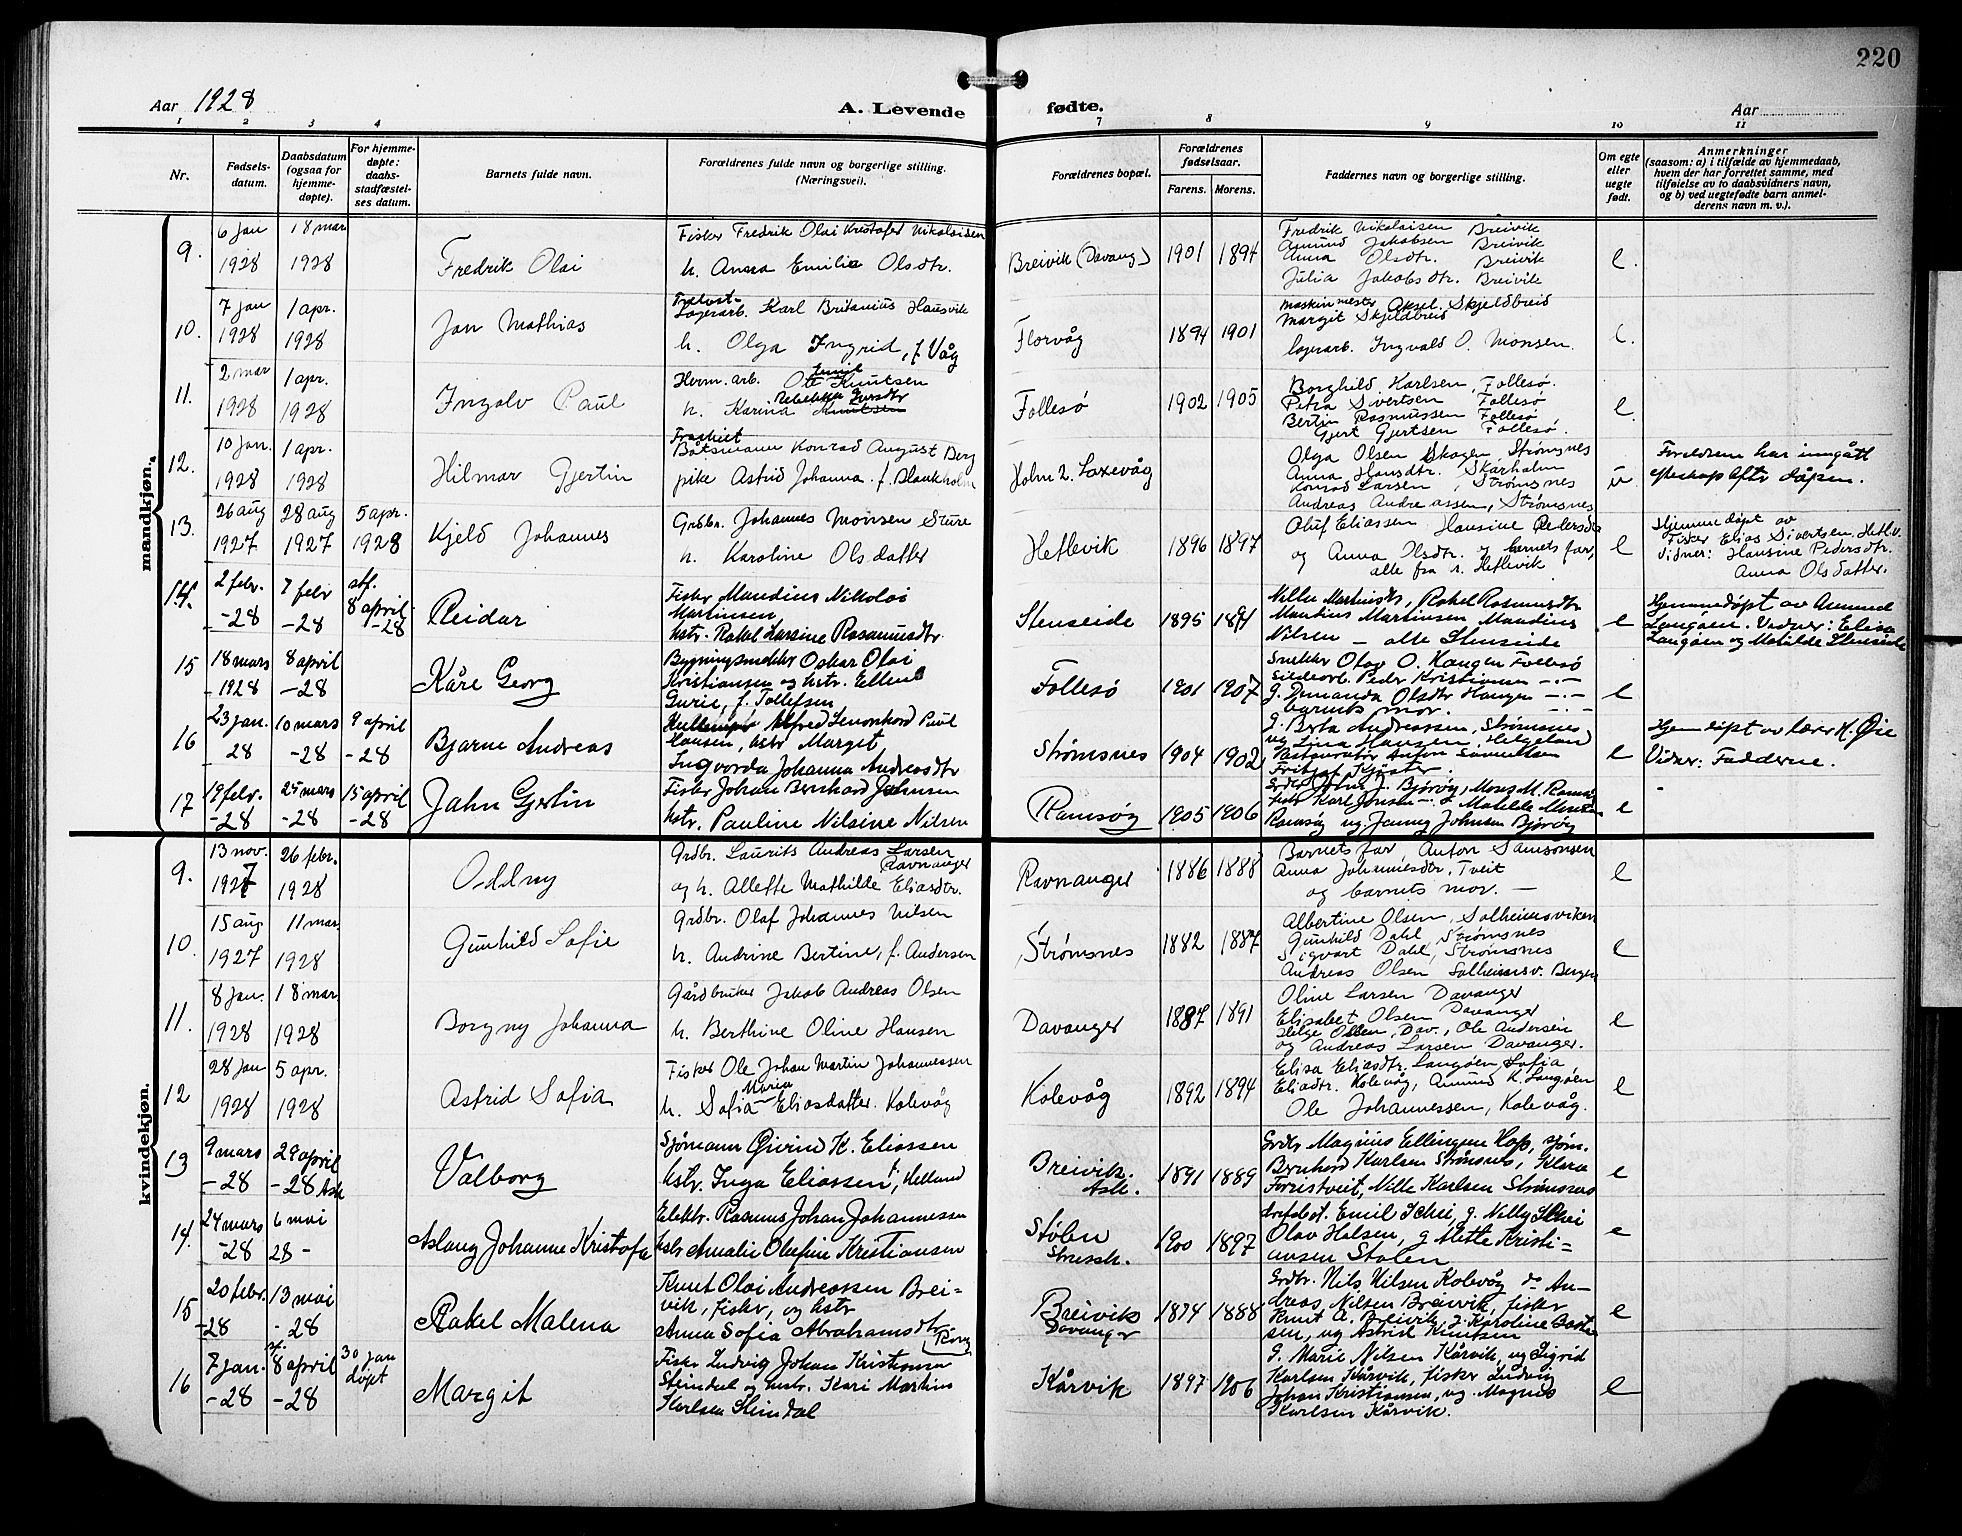 220
Aar 1928
A. Levende fødte.
Aar
1 2 3 4 7 8 9 10 11
Nr.
Fødsels-
datum.
Daabsdatum
(ogsaa for
hjemme-
døpte).
For hjemme-
døpte:
daabs-
stadfæstel-
ses datum.
Barnets fulde navn.
Forældrenes fulde navn og borgerlige stilling.
(Næringsvei).
Forældrenes bopæl.
Forældrenes
fødselsaar.
Farens. Morens.
Faddernes navn og borgerlige stilling.
Om egte
eller
uegte
født.
Anmerkninger
(saasom: a) i tilfælde av hjemmedaab,
hvem der har forrettet samme, med
tilføielse av to daabsvidners navn,
og b) ved uegtefødte barn anmel-
derens navn m. v.).
mandkjøn.
9.
6 jan
1928
18 mar
1928
Fredrik Olai
Fisker Fredrik Olai Kristofer Nikolaisen
h. Anna Emilie Olsdtr.
Breivik (Davang.)
1901 1894
Fredrik Nikolaisen Breivik
Amund Jakobsen Breivik
Anna Olsdtr. Breivik
Julia Jakobsdtr. Breivik
e.
10.
7 jan
1928
1 apr.
1928
Jan Mathias
Lagerarb. Karl Britanius Hausvik
h. Olga Ingrid, f. Våg
Florvåg
1894 1901
maskinmester Aksel Skjeldbreid
Margit Skjeldbreid
lagerarb. Ingvald O. Monsen.
e.
11.
2 mar
1928
1 apr.
1928
Ingolv Paul
Herm. arb. Emil Knutsen
h. Karina Rebekka Iversdtr
Follesø
1902 1905
Borghild Karlsen, Follesø.
Petra Sivertsen Follesø
Bertin Rasmussen Follesø,
Gjert Gjertsen Follesø.
e
12.
10 jan.
1928
1 apr.
1928
Hilmar Gjertin
Båtsmann Konrad August Berg
pike Astrid Johanna f. Blankholm
Holm 2. Laxevåg
Olga Olsen Skogen, Strømsnes
Anna Hansdtr. Skarholm
Konrad Larsen, Strømsnes
Andreas Andreassen, Strømsnes
u
Foreldrene har inngått
efter dåpen.
13.
26 aug
1927
28 aug
1927
5 apr.
1928
Kjeld Johannes
Grdbr. Johannes Monsen Sture
h. Karoline Olsdatter
Hetlevik
1896 1897
Oluf Eliassen Hansine Pedersdtr
og Anna Olsdtr. og barnets far,
alle fra n. Hetlevik
e
Hjemmedøpt av
Fisker Elias Sivertsen, Hetlv.
Vidner: Hansine Pedersdtr.
Anna Olsdatter.
14.
2 febr.
-28
7 febr
-28
stf.
8 april
-28
Reidar
Fisker Mandius Nikolai
Martinsen
hstr. Rakel Larsine Rasmusdtr
Stenseide
1895
Nillie Martinsdtr, Rakel Rasmusdtr
Mandius Martinsen Mandius
Nilsen - alle Stenseide
e
Hjemmedøpt av Amund
Langøen. Vidner: Elisa
Langøen og Matilde Stenseide
15
18 mars
-1928
8 april
-28
Kåre Georg
Bygningssnekker Oskar Olai
Kristiansen og hstr. Elline
Gurie, f. Tollefsen
Follesø
1901 1907
Snekker Olav O. Haugen Follesø
sildearb. Peder Kristiansen -.-
g. Amanda Olsdtr Haugen -.-
barnets mor. -.-
e
16
23 jan.
28
10 mars
-28
9 april
-28
Bjarne Andreas
Alfred Lenonhard Paul
Hansen, hstr Marget
Ingvarda Johanna Andreasdtr
Strømsnes
1904 1902
g. Berta Andreassen, Strømsnes
og Lina Hansen, Helgeland
Restauratør Anton Samuelsen
Fritjof Kjøster
e
Hjemdøpt av lærer K. Øie
Vidner: Fadderne.
17
19 febr.
-28
25 mars
-28
15 april
-28
Jahn Gjertin
Fisker Johan Bernhard Johnsen
hstr. Pauline Nilsine Nilsen
Ramsøy
1905 1906
Grdbr Johns J. Bjørøy, Mons M. Ramsøy
fiskr Karl Jonsen - g Matilde Monsen
Ramsøy og Jenny Johnsen Bjørøy
e
kvindekjøn.
9.
13 nov.
1927
26 febr.
1928
Oddny
Grdbr. Laurits Andreas Larsen
Ravnanger
og h. Allette Mathilde Eliasdtr.
Ravnanger
1886 1888
Barnets far Anton Samsonsen
Anna Johannesdtr. Tveit
og barnets mor. -
e
10
15 aug
1927
11 mar.
1928
Gunhild Sofie
Grdbr. Olaf Johannes Nilsen
h. Andrine Bertine, f. Andersen
Strømsnes
1882 1887
Albertine Olsen, Solheimsviken
Gunhild Dahl, Strømsnes
Sigvart Dahl, Strømsnes
Andreas Olsen Solheimsv. Bergen
e
11.
8 jan.
1928
18 mar.
1928
Borgny Johanna
Gårdbruker Jakob Andreas Olsen
h. Berthine Oline Hansen
Davanger
1887 1891
Oline Larsen Davanger
Elisabet Olsen Davanger
Helge Olsen, Dav., Ole Andersen
og Andreas Larsen Davanger.
e
12
28 jan
1928
5 apr.
1928
Astrid Sofia
Fisker Ole Johan Martin Johannessen
h. Sofia Maria Eliasdatter. Kolevåg
Kolevåg
1892 1894
Elisa Eliasdtr. Langøen, Sofia
Eliasdtr. Kolevåg, Amund K. Langøen
Ole Johannessen, Kolevåg.
e
13
9 mars
-28
29 april
-28 Ask
Valborg
Sjømann Øivind K. Eliassen
hstr. Inga Eliassen f. Helland
Breivik.
Ask.
1891 1889
Grdbr Magnus Ellingsen Hop, sjøm.
Bernhard Karlsen Strømsnes, Klara
Forristveit, Nille Karlsen Strømsnes
e
14.
24 mars
-28
6 mai
28 -
Aslaug Johanne Kristofa
Elektr. Rasmus Johan Johannessen
hstr Amalie Olufine Kristiansen
Stølen
1900 1897
Emil Schei, g. Nelly Schei
Olav Helsen, g Mette Kristi=
ansen Stølen
e
15
20 febr.
-28
13 mai
-28
Rakel Malena
Knut Olai Andreassen Brei=
vik, fisker, og hstr
Anna Sofia Abrahamsdtr
(Rong
Breivik
Davanger
1874 1888
Grdbr. Nils Nilsen Kolevåg do An-
dreas Nilsen Breivik, fisker
Knut A. Breivik, g. Karoline
sen, og Astrid Knutsen
e
16
7 jan.
-28
sf.
8 april
-28
30 jan
døpt
Margit
Fisker Ludvig Johan Kristiansen
Steindal og hustr. Kari Martine
Karlsen Steindal
Kårvik
1897 1906
G. Marie Nilsen Kårvik, og Sigrid
Karlsen Kårvik, fisker Ludvig
Johan Kristiansen, og Magnus
Karlsen Kårvik.
e